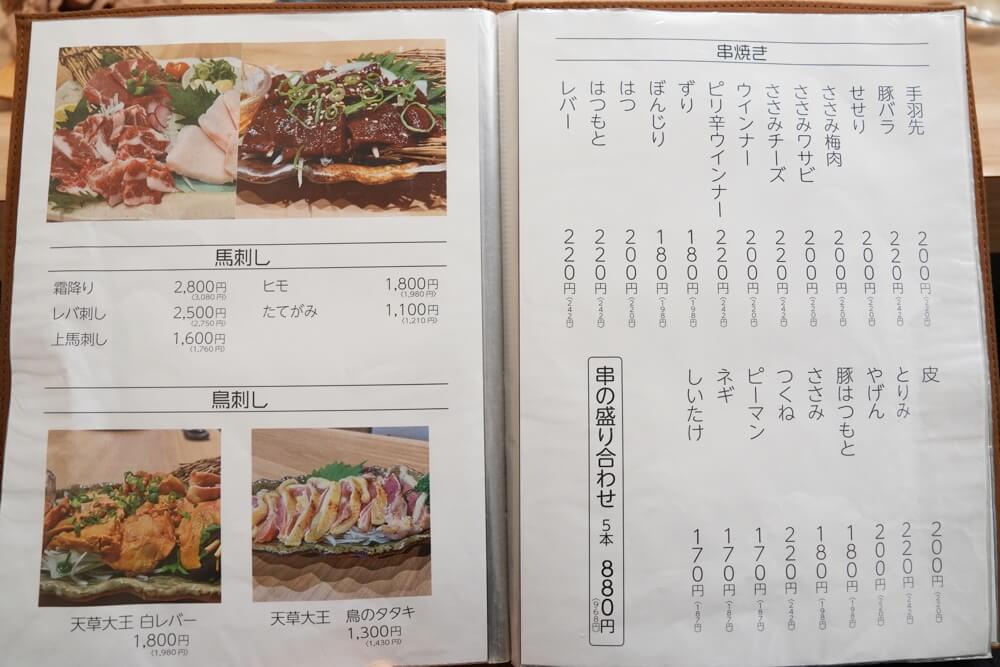 馬刺し
霜降り 2,800円
(3,080円)
レバ刺し 2,500円
(2,750円)
上馬刺し 1,600円
(1,760円)
ヒモ 1,800円
(1,980円)
たてがみ 1,100円
(1,210円)
鳥刺し
天草大王 白レバー
1,800円
(1,980円)
天草大王 鳥のタタキ
1,300円
(1,430円)
串焼き
手羽先 200円(220円)
豚バラ 220円(242円)
せせり 200円(220円)
ささみ梅肉 200円(220円)
ささみワサビ 200円(220円)
ささみチーズ 220円(242円)
ウインナー 200円(220円)
ピリ辛ウインナー 220円(242円)
ずり 180円(198円)
ぼんじり 180円(198円)
はつ 200円(220円)
はつもと 220円(242円)
レバー 220円(242円)
皮 200円(220円)
とりみ 220円(242円)
やげん 200円(220円)
豚はつもと 180円(198円)
ささみ 180円(198円)
つくね 220円(242円)
ピーマン 170円(187円)
ネギ 170円(187円)
しいたけ 170円(187円)
串の盛り合わせ 5本 880円(968円)